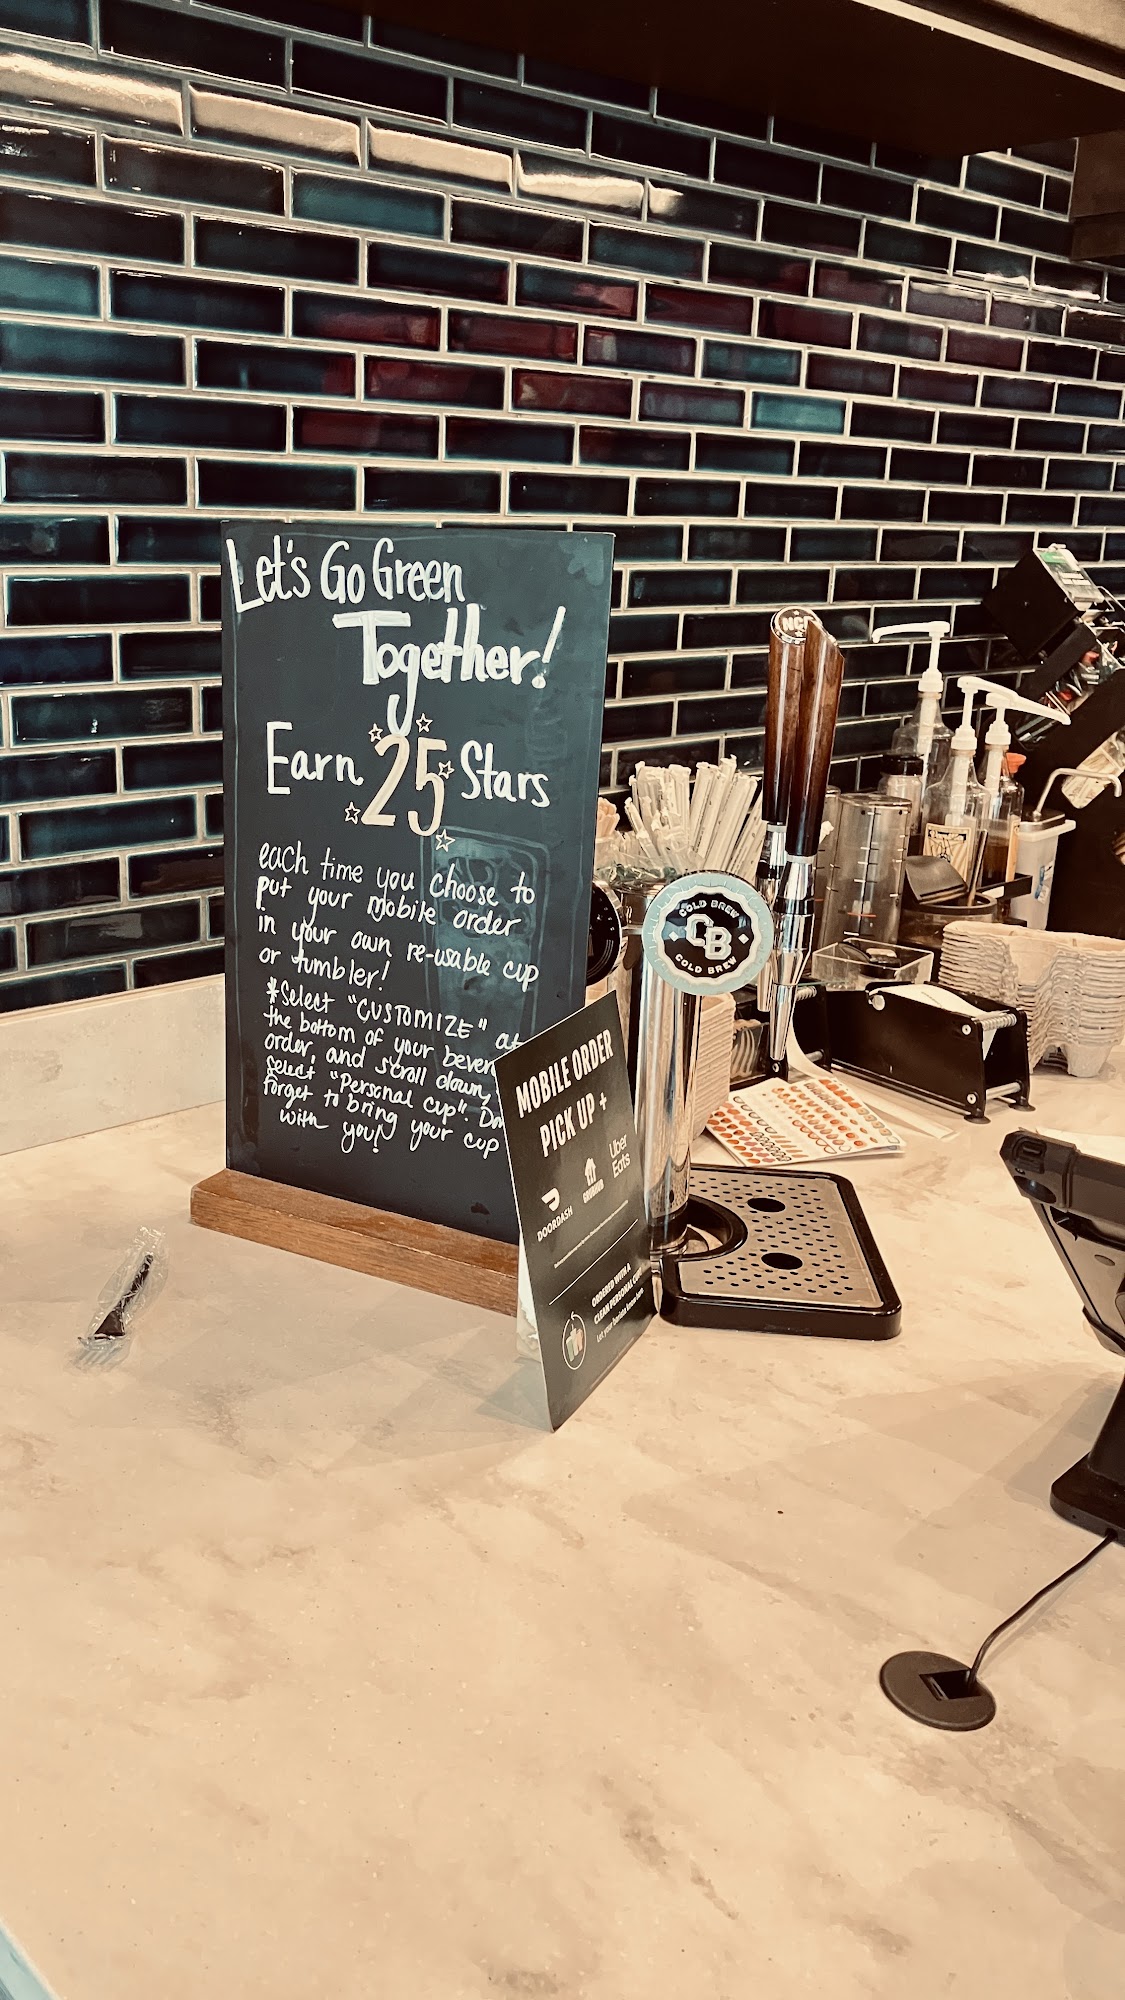 Let's Go Green
Together!
Earn 25 Stars
each time you choose to
put your mobile order
in your own re-usable cup
or tumbler!
*Select "CUSTOMIZE" at
the bottom of your bever
order, and scroll down,
select "Personal cup". Do
forget to bring your cup
with you!
MOBILE ORDER
PICK UP +
DOORDASH
GRUBHUB
Uber
Eats
ORDERED WITH A
CLEAN PERSONAL CUP?
Let your barista know
COLD BREW
CB
COLD BREW